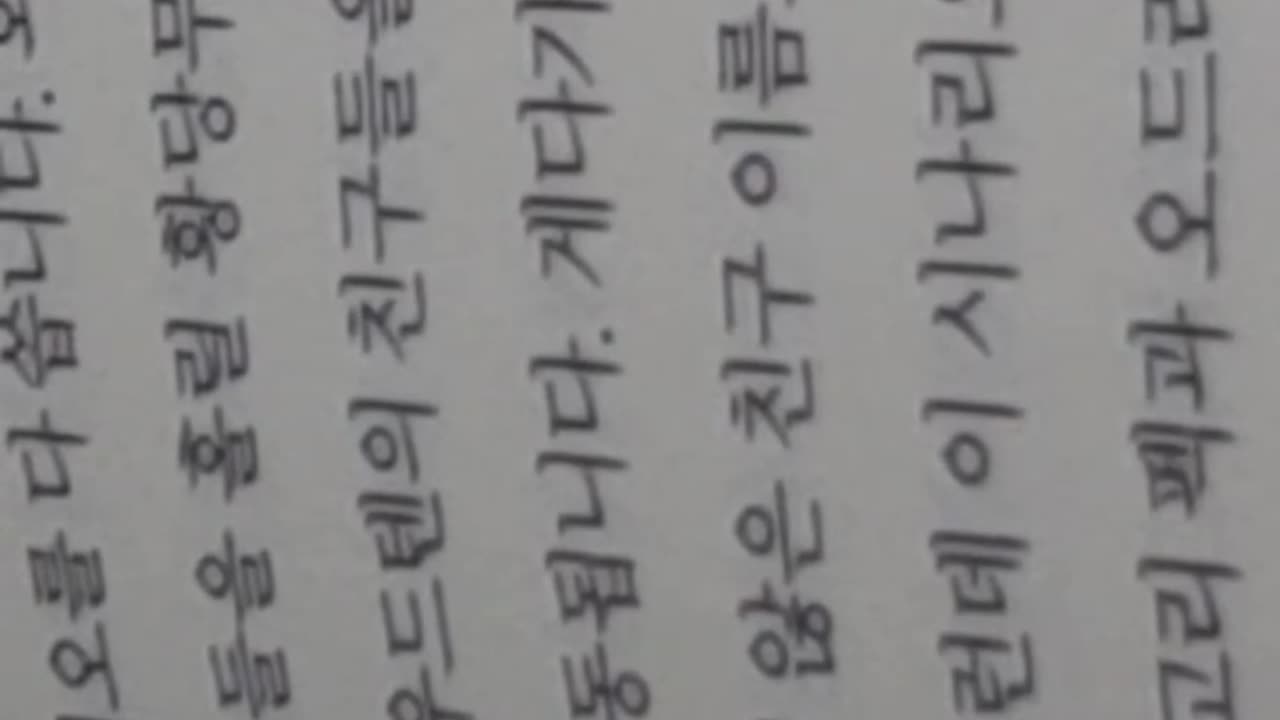 오를 다 씁니다.
들을 홀릴 황당무
우드텐의 친구들을
동됩니다. 게다가
않은 친구 이름
런데 이 시나리
고리 펙과 오드리